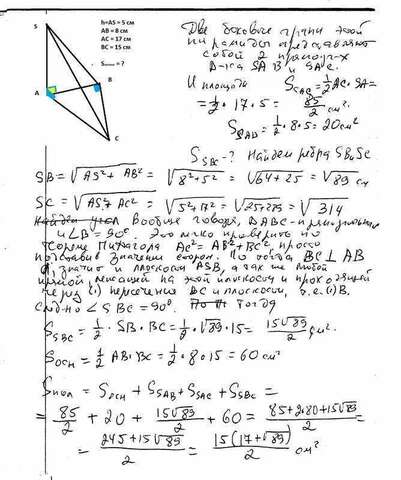 S
h=AS = 5 см
AB = 8 см
AC = 17 см
BC = 15 см
S = ?
A
B
C
Две боковые грани этой
пирамиды представляют
собой 2 прямоуг-х
Δ-ка SAB и SAC.
И площади S_SAC = 1/2 AC · SA =
= 1/2 · 17 · 5 = 85/2 см².
S_SAB = 1/2 · 8 · 5 = 20 см²
S_SBC - ? Найдем ребра SB и SC
SB = √(AS² + AB²) = √(8² + 5²) = √(64+25) = √89 см
SC = √(AS² + AC²) = √(5² + 17²) = √(25+289) = √314
Найдем угол Вообще говоря, ΔABC - прямоугольн
и ∠B = 90°. Это легко проверить по
теореме Пифагора AC² = AB² + BC², просто
подставив значения сторон. BC ⊥ AB
а значит и плоскости ASB, а так же любой
прямой, лежащей на этой плоскости и проходящей
через (·) пересечения BC и плоскости, т.е. (·) B.
След-но ∠SBC = 90°. Тогда
S_SBC = 1/2 · SB · BC = 1/2 · √89 · 15 = 15√89/2 см².
S_осн = 1/2 AB · BC = 1/2 · 8 · 15 = 60 см²
S_пол = S_осн + S_SAB + S_SAC + S_SBC =
= 85/2 + 20 + 15√89/2 + 60 = (85 + 2·80 + 15√89)/2 =
= (245 + 15√89)/2 = 15(17 + √89)/2 см²